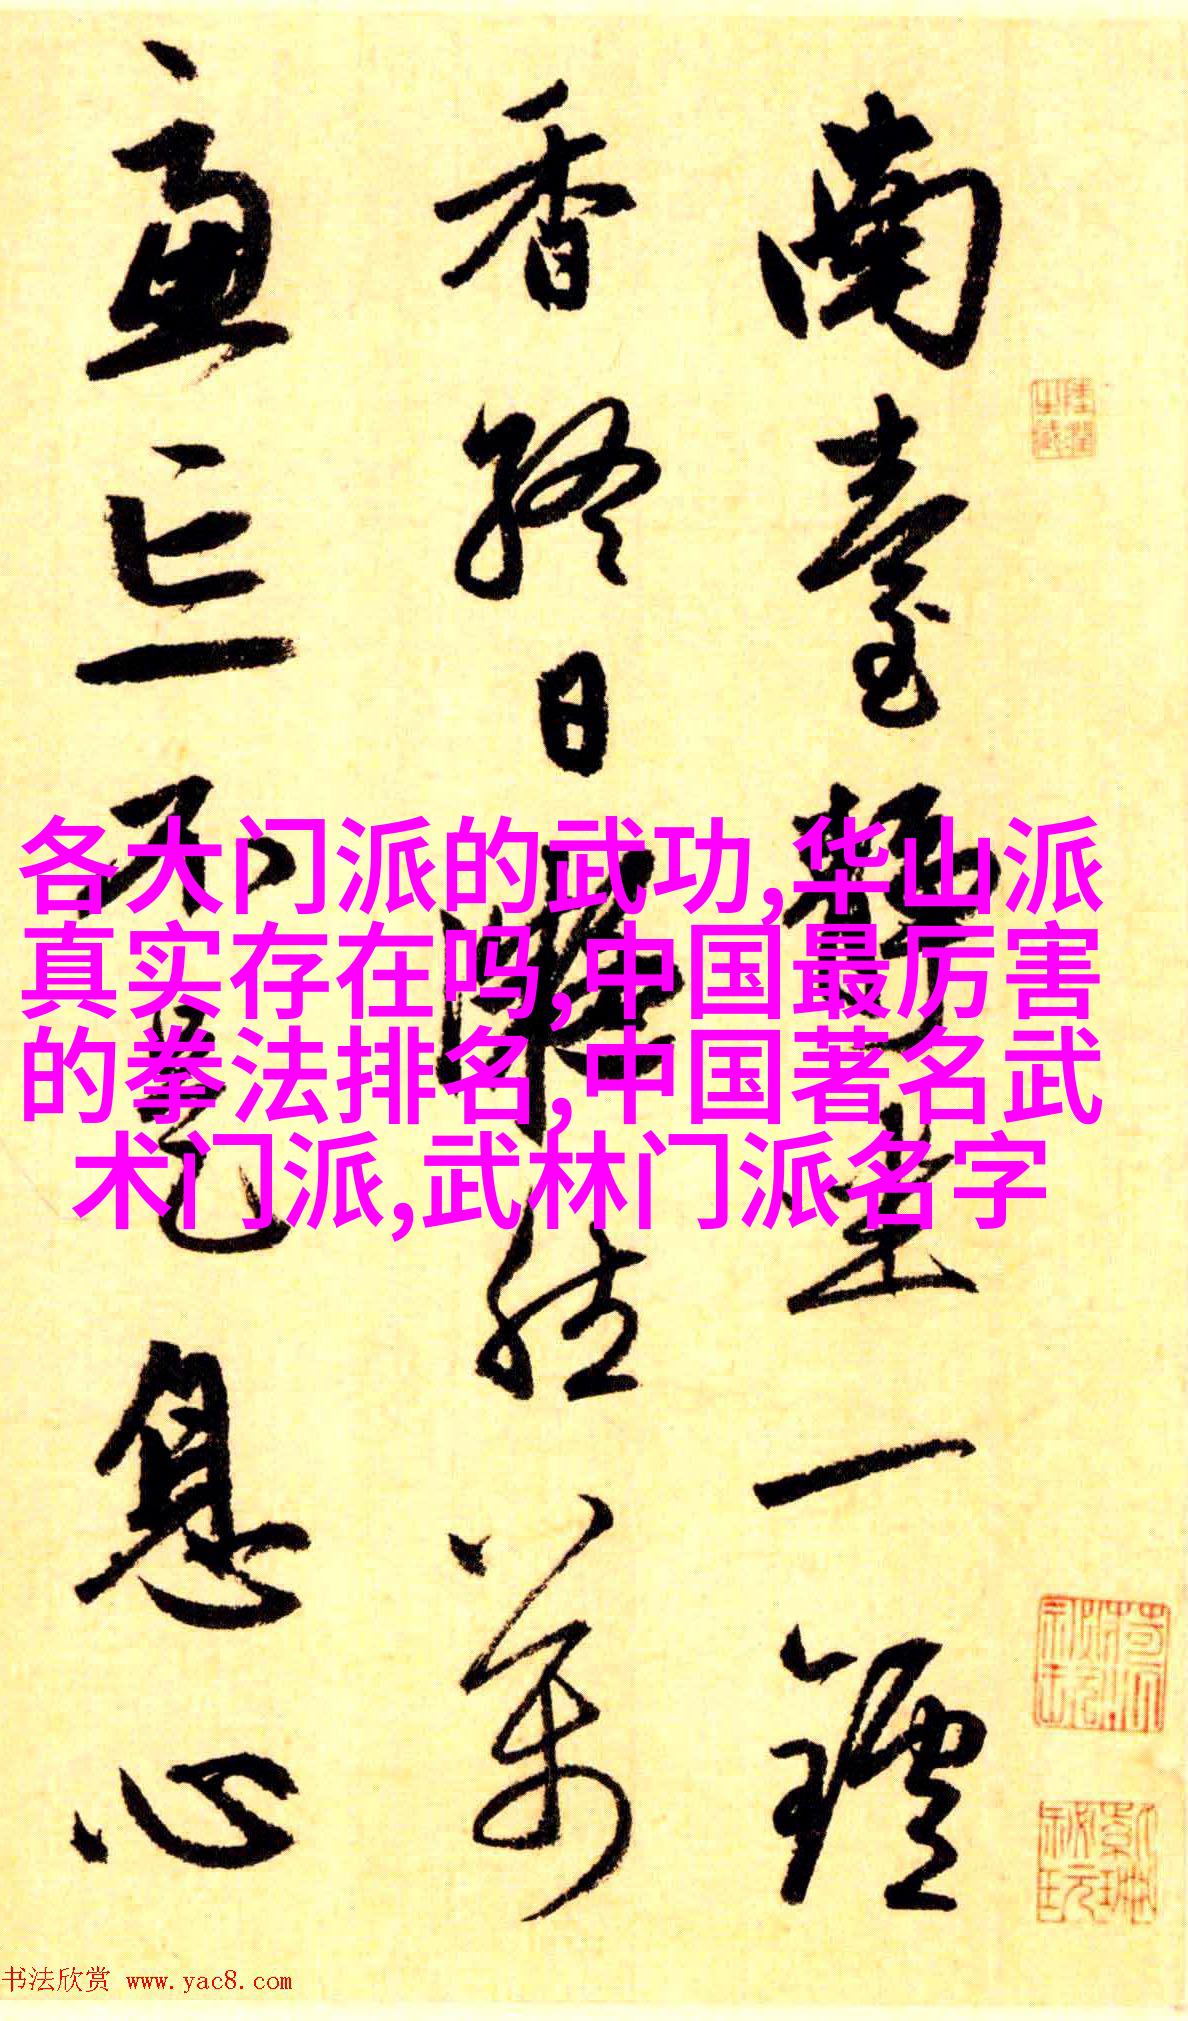 南臺静坐一鑪
香終日凝然萬
慮亡不是息心
各大门派的武功,华山派
真实存在吗,中国最厉害
的拳法排名,中国著名武
术门派,武林门派名字
书法欣赏 www.yac8.com